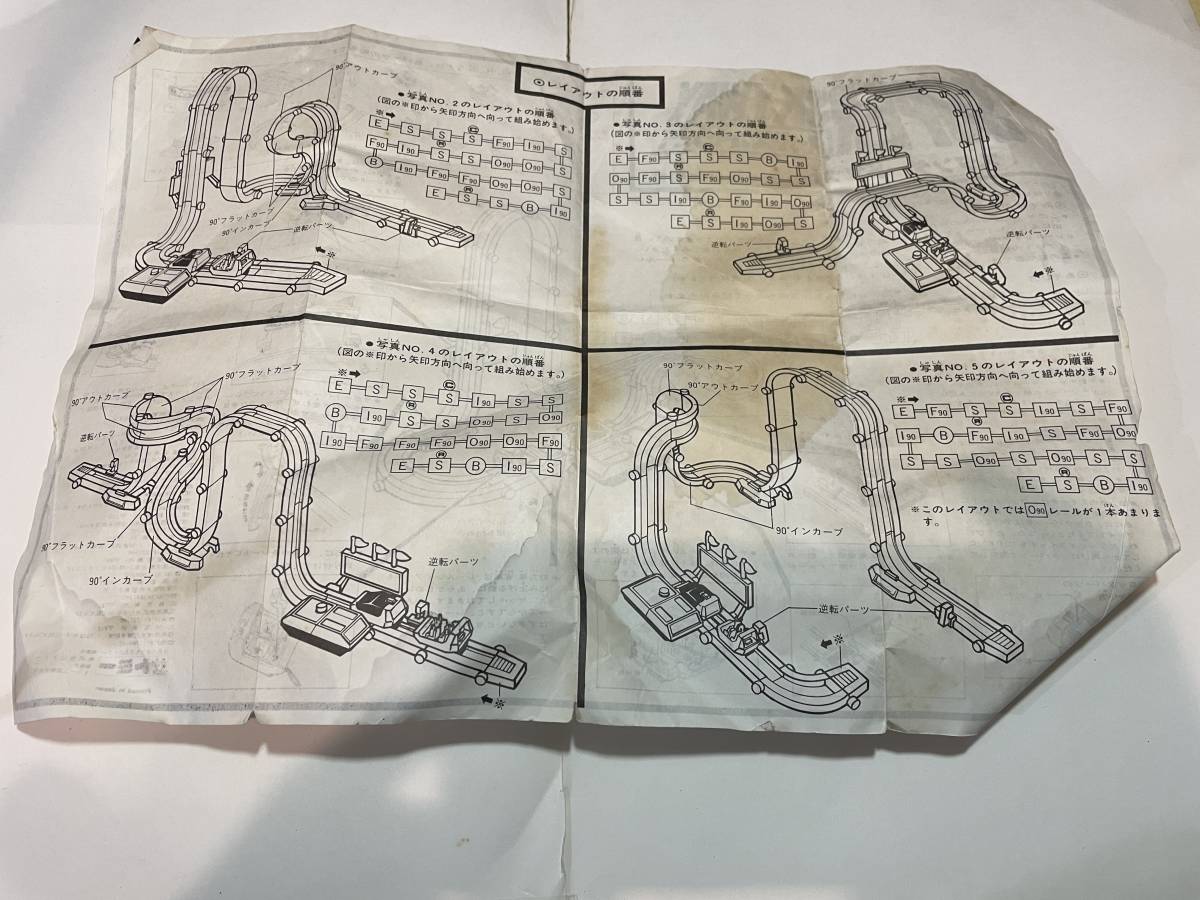 ⊙レイアウトの順番
90°アウトカーブ
●写真NO.2のレイアウトの順番
(図の※印から矢印方向へ向って組み始めます。)
※➡
C
E S S S F90 I90 S
R
F90 I90 S S O90 O90 S
B I90 F90 F90 O90 O90 S
R
E S S B I90
90°フラットカーブ
90°インカーブ
逆転パーツ
⬅※
90°フラットカーブ
●写真NO.3のレイアウトの順番
(図の※印から矢印方向へ向って組み始めます。)
※➡
C
E F90 S S S B I90
R
O90 F90 S F90 O90 S S
S S I90 B F90 I90 O90
R
E S I90 I90 O90 S
逆転パーツ
逆転パーツ
⬅※
●写真NO.4のレイアウトの順番
(図の※印から矢印方向へ向って組み始めます。)
※➡
C
E S S S I90 S S
R
B I90 S S S O90 O90
I90 F90 F90 F90 O90 O90 F90
R
E S B I90 S
90°フラットカーブ
90°アウトカーブ
逆転パーツ
90°フラットカーブ
90°インカーブ
逆転パーツ
⬅※
90°フラットカーブ
90°アウトカーブ
●写真NO.5のレイアウトの順番
(図の※印から矢印方向へ向って組み始めます。)
※➡
C
E F90 S S I90 S F90
R
I90 B F90 I90 S F90 O90
S S O90 S O90 S S
R
E S B I90
※このレイアウトではO90レールが1本あまりま
す。
90°インカーブ
逆転パーツ
⬅※